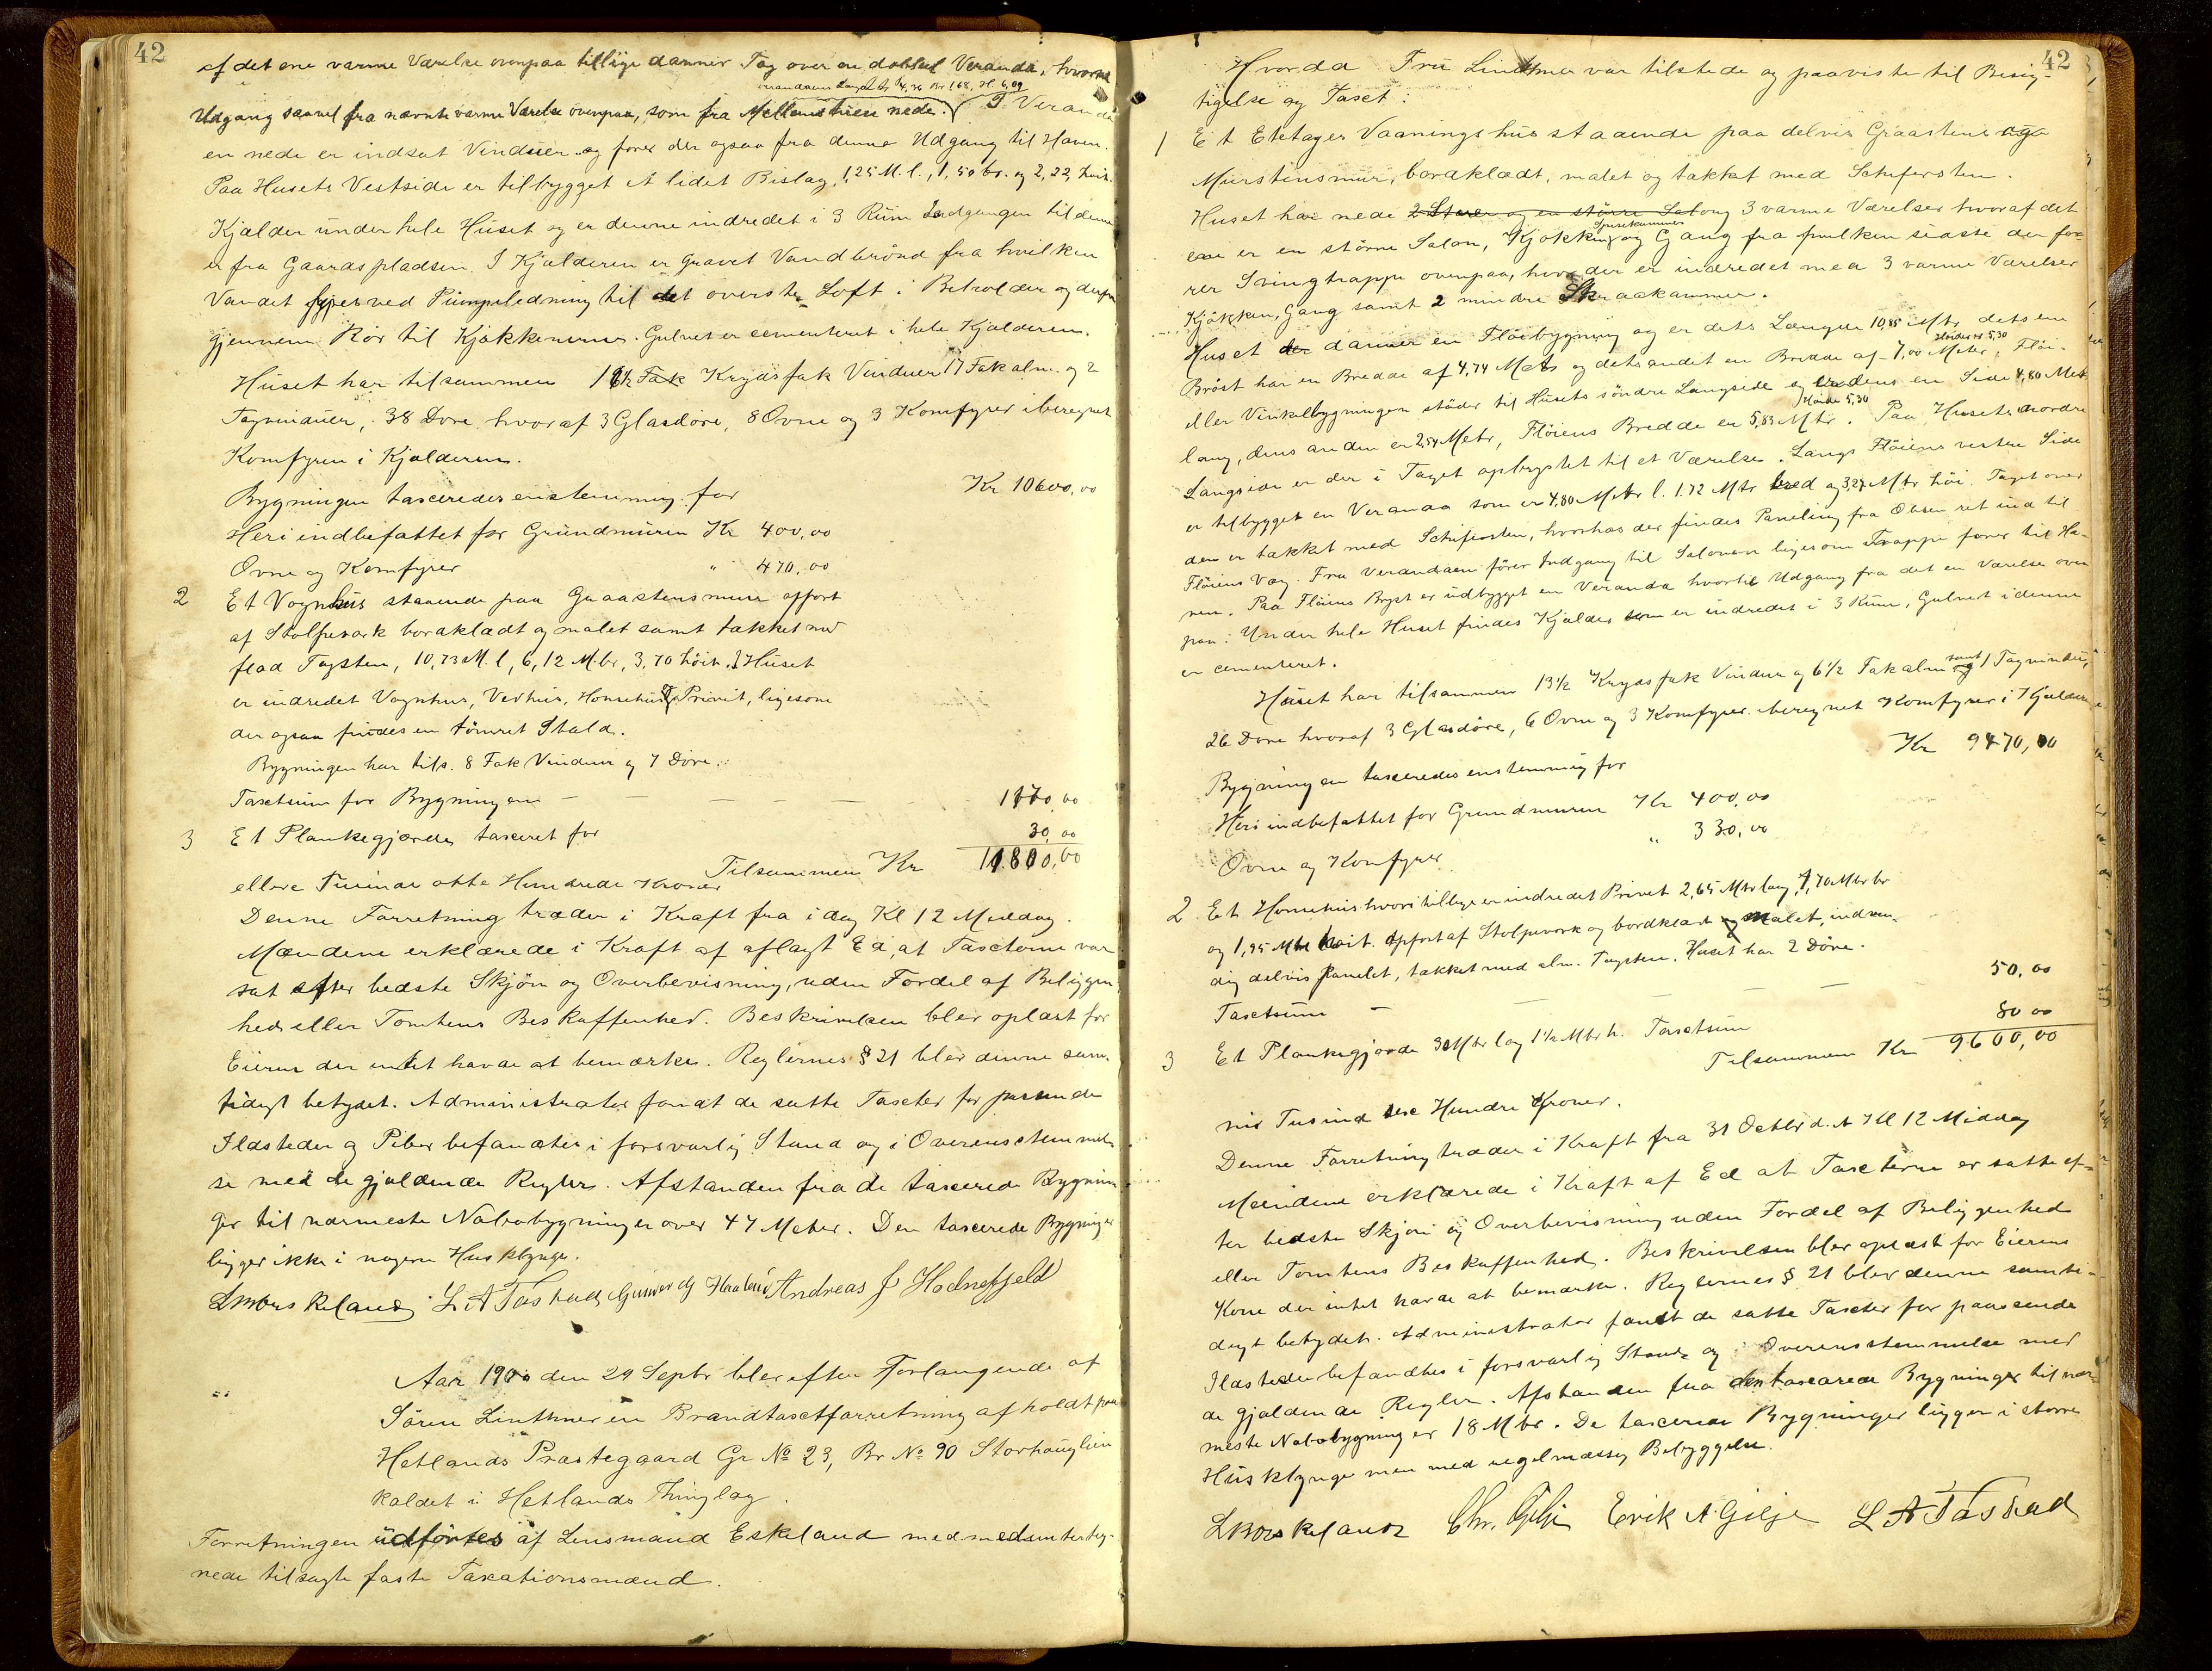 42
af det ene varme Værelse ovenpaa tillige danner Tag over en dobbel Veranda, hvortil
Udgang saavel fra nævnte varme Værelse ovenpaa, som fra nede. I Verandaen
en nede er indsat Vinduer og fører der ogsaa fra denne Udgang til Haven.
Paa Husets Vestside er tilbygget et lidet Bislag, 1,25 M. l., 1,50 br. og 2,22 høit.
Kjælder under hele Huset og er denne indredet i 3 Rum Indgangen til denne
er fra Gaardspladsen. I Kjælderen er gravet Vandbrønd fra hvilken
Vandet ved Pumpeledning til det øverste Loft i Beholder og derfra
gjennem Rør til Kjøkkenerne. Gulvet er cementeret i hele Kjælderen.
Huset har tilsammen 16½ Fak Krydsfak Vinduer 17 Fak alm. og 2
Tagvinduer, 38 Døre hvoraf 3 Glasdøre, 8 Ovne og 3 Komfyrer iberegnet
Komfyren i Kjælderen.
Bygningen taxeredes enstemmig for Kr 10600,00
Heri indbefattet for Grundmuren Kr 400,00
Ovne og Komfyrer " 470,00
2 Et Vognhus staaende paa Graastensmure opført
af Stolpeværk bordklædt og malet samt tækket med
flad Tagsten, 10,73 M. l, 6,12 M. br, 3,70 høit. I Huset
er indredet Vognhus, Vedhus, Hønsehus & Privit, ligesom
der ogsaa findes en tømret Stald.
Bygningen har tils. 8 Fak Vinduer og 7 Døre.
Taxtsum for Bygningen - - - - - 1170,00
3 Et Plankegjærde taxeret for 30,00
Tilsammen Kr 11800,00
elleve Tusinde otte Hundrede Kroner
Denne Forretning træder i Kraft fra i dag Kl 12 Middag.
Mændene erklærede i Kraft af aflagt Ed, at Taxterne var
sat efter bedste Skjøn og Overbevisning, uden Fordel af Beliggen
hed eller Tomtens Beskaffenhed. Beskrivelsen blev oplæst for
Eieren der intet havde at bemærke. Reglernes § 21 blev denne sam-
tidigt betydet. Administrator fandt de satte Taxter for passende
Ildsteder og Piber befandtes i forsvarlig Stand og i Overensstemmel
se med de gjældende Regler. Afstanden fra de taxerede Bygnin
ger til nærmeste Nabobygning er over 47 Meter. Den taxerede Bygninger
ligger ikke i nogen Husklynge.
Eskeland L A Tastad Gunder Haaland Andreas J Hodnefjeld
Aar 1900 den 29 Septbr blev efter Forlangende af
Søren Linthner en Brandtaxtforretning afholdt paa
Hetlands Præstegaard Gr No 23, Br No 90 Storhauglien
kaldet i Hetlands Thinglag.
Forretningen udførtes af Lensmand Eskeland med medunderteg-
nede tilsagte faste Taxationsmænd.
42
Hvorda Fru Linthner var tilstede og paaviste til Besig-
tigelse og Taxt:
1 Et Etetages Vaaningshus staaende paa delvis Graastens og
Murstensmur, bordklædt, malet og tækket med Schifersten.
Huset har nede 2 Stuer og en større Salong 3 varme Værelser hvoraf det
Spisekammer
ene er en større Salon, Kjøkken og Gang fra hvilken sidste der fø-
rer Svingtrappe ovenpaa, hvor der er indredet med 3 varme Værelser
Kjøkken, Gang samt 2 mindre Skraakammer.
Huset danner en Fløibygning og er dets Længde 10,85 Mtr, dets ene
Høiden er 5,30
Brøst har en Bredde af 4,74 Met og dets andet en Bredde af 7,00 Meter. Fløi-
eller Vinkelbygningen støder til Husets søndre Langside og er dens ene Side 4,80 Met
Høide 5,30
lang, dens anden er 2,54 Metr, Fløiens Bredde er 5,83 Mtr. Paa Husets nordre
Langside er der i Taget opbygget til et Værelse. Langs Fløiens vestre Side
er tilbygget en Veranda som er 4,80 Metr l. 1.72 Mtr bred og 3,27 Mtr høi. Taget over
den er tækket med Schifersten, hvorhos der findes Paneling fra Øksen ret ind til
Fløiens Væg. Fra Verandaen fører Indgang til Salonen ligesom Trappe fører til Ha-
ven. Paa Fløiens Bryst er udbygget en Veranda hvortil Udgang fra det ene Værelse oven
paa. Under hele Huset findes Kjælder som er indredet i 3 Rum, Gulvet i denne
er cementeret.
Huset har tilsammen 13½ Krydsfak Vinduer og 6½ Fakalm samt 1 Tagvindu,
26 Døre hvoraf 3 Glasdøre, 6 Ovne og 3 Komfyrer iberegnet Komfyrer i Kjælderen
Bygningen taxeredes enstemmig for Kr 9470,00
Heri indbefattet for Grundmuren Kr 400,00
Ovne og Komfyrer " 330,00
2 Et Hønsehus hvori tillige er indredet Privet 2,65 Mtr lang, 1,70 Mtr br
og 1,95 Mtr høit. Opført af Stolpeværk og bordklædt og malet, indven-
dig delvis panelet, tækket med alm. Tagsten. Huset har 2 Døre.
Taxtsum - - - - 50,00
3 Et Plankegjærde 30 Mtr lang 1½ Mtr h. Taxtsum 80 00
Tilsammen Kr 9600,00
ni Tusind sex Hundre Kroner.
Denne Forretning træder i Kraft fra 31 Octbr d. A Kl 12 Middag
Mændene erklærede i Kraft af Ed at Taxterne er satte ef-
ter bedste Skjøn og Overbevisning uden Fordel af Beliggenhed
eller Tomtens Beskaffenhed. Beskrivelsen blev oplæst for Eierens
Kone der intet havde at bemærke. Reglernes § 21 blev denne samti-
digt betydet. Administrator fandt de satte Taxter for passende
Ildsteder befandtes i forsvarlig Stand og i Overensstemmelse med
de gjældende Regler. Afstanden fra den taxerede Bygninger til nær-
meste Nabobygning er 18 Mtr. De taxerede Bygninger ligger i større
Husklynge men med regelmæssig Bebyggelse.
Eskeland Chr. Gilje Erik A Gilje L A Tastad